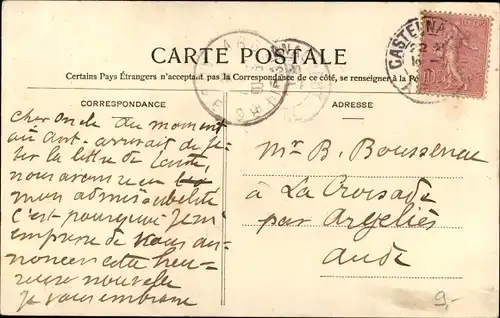 CARTE POSTALE
Certains Pays Étrangers n'acceptant pas la Correspondance de ce côté, se renseigner à la Po
CORRESPONDANCE
ADRESSE
CASTELNA
22
Cher Oncle du moment
où Ant. arrivait de je-
ter la lettre de
nous avons reçu
mon admissibilité
c'est pourquoi je m'
empresse de vous an-
noncer cette heu-
reuse nouvelle
Je vous embrasse
Mr B. Boussenac
à La Croisade
par Argeliès
Aude
9.-